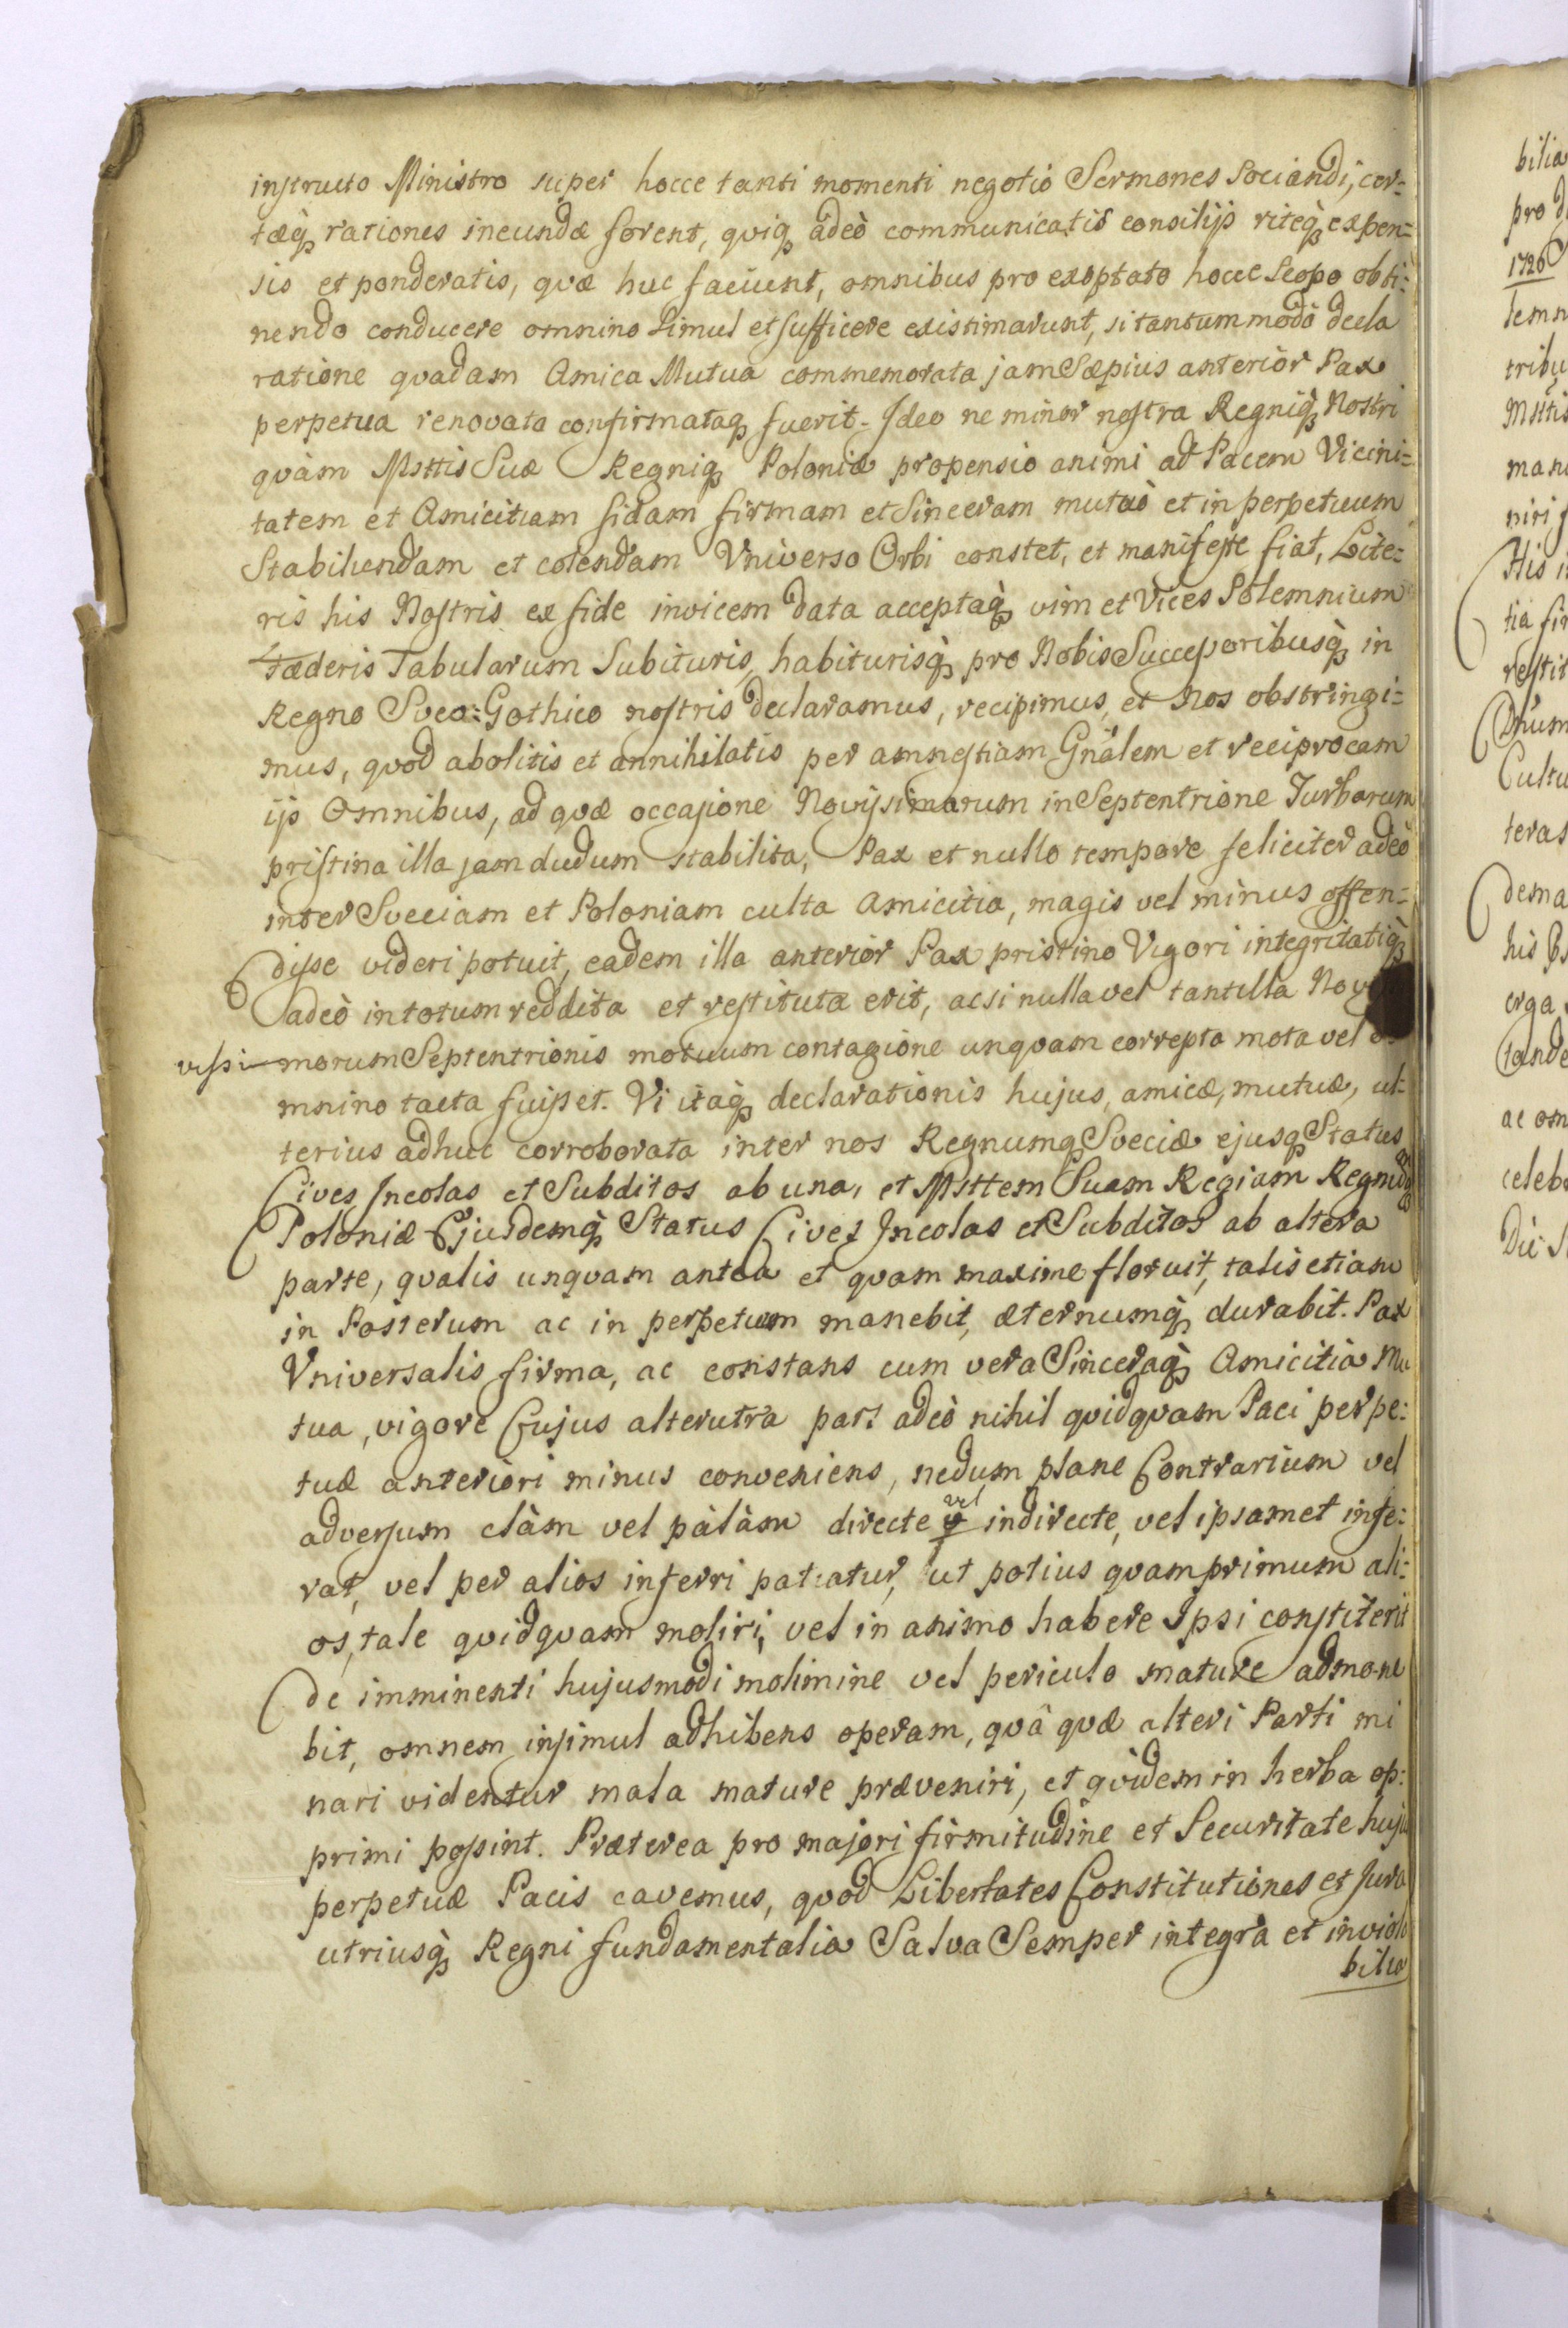 instructo Ministro super hocce tanti momenti negotio Sermones Sociandi, cer-
tæq̀₃ rationes ineundæ forent, qviq₃ adeò communicatis consilijs riteq̀₃ expen-
sis et ponderatis, qvæ huc faciunt, omnibus pro exoptato hocce Scopo obti-
nendo conducere omnino Simul et sufficere existimarunt, si tantummodò decla
ratione qvadam Amica Mutua commemorata jam Sæpius anterior Pax
perpetua renovata confirmataq₃ fuerit. Ideo ne minor nostra Regniq̀₃ Nostri
qvàm Mttis Suæ Regniq₃ Poloniæ propensio animi ad Pacem Vicini-
tatem et Amicitiam fidam firmam et Sinceram mutuò et in perpetuum
Stabiliendam et colendam Vniverso Orbi constet, et manifeste fiat, Lite-
ris his Nostris ex fide invicem data acceptaq̀₃ vim et Vices Solemnium
Fæderis Tabularum Subituris, habiturisq̀₃ pro Nobis Successoribusq̀₃ in
Regno Sveo-Gothico nostris declaramus, recipimus, et nos obstringi-
mus, qvod abolitis et annihilatis per amnestiam Gnãlem et reciprocam
ijs Omnibus, ad qvæ occasione Novissimarum in Septentrione Turbarum
pristina illa jam dudum stabilita, Pax et nullo tempore feliciter adeò
inter Sveciam et Poloniam culta Amicitia, magis vel minus offen-
disse videri potuit, eadem illa anterior Pax pristino Vigori integritatiq̀₃
adeò in totum reddita et restituta erit, acsi nulla vel tantilla No
vissi-morum Septentrionis motuum contagione unqvam correpta mota vel o
mnino tacta fuisset. Vi itaq̀₃ declarationis hujus, amicæ, mutuæ, ul-
terius adhuc corroborata inter nos Regnumq₃ Sveciæ ejusq₃ Status
Cives Incolas et Subditos ab una, et Mttem Suam Regiam Regniq₃
Poloniæ Ejusdemq̀₃ Status Cives Incolas et Subditos ab altera
parte, qvalis unqvam antea et qvam maxime floruit, talis etiam
in Posterum ac in perpetuum manebit, æternumq̀₃ durabit. Pax
Vniversalis firma, ac constans cum vera Sinceraq̀₃ Amicitia Mu
tua, vigore Cujus alterutra pars adeò nihil qvidqvam Paci perpe-
tuæ anteriori minus conveniens, nedum plane Contrarium vel
adversum clàm vel pàlàm directe vel indirecte, vel ipsamet infe-
rat, vel per alios inferri patiatur, ut potius qvamprimum ali-
os, tale qvidqvam moliri, vel in animo habere Ipsi constiterit
de imminenti hujusmodi molimine vel periculo mature admone
bit, omnem insimul adhibens operam, qvâ qvæ alteri Parti mi
nari videntur mala mature præveniri, et qvidem in herba op-
primi possint. Præterea pro majori firmitudine et Securitate huju
perpetuæ Pacis cavemus, qvod Libertates Constitutiones et Jura
utriusq̀₃ Regni fundamentalia Salva Semper integra et inviola
bilia
bilia
pro
1720
temn
tribu
Mttis
man
niri
His
tia fir
restit
Dnum
Cultu
teras
dema
his
erga
tande
ac om
celeb
Die